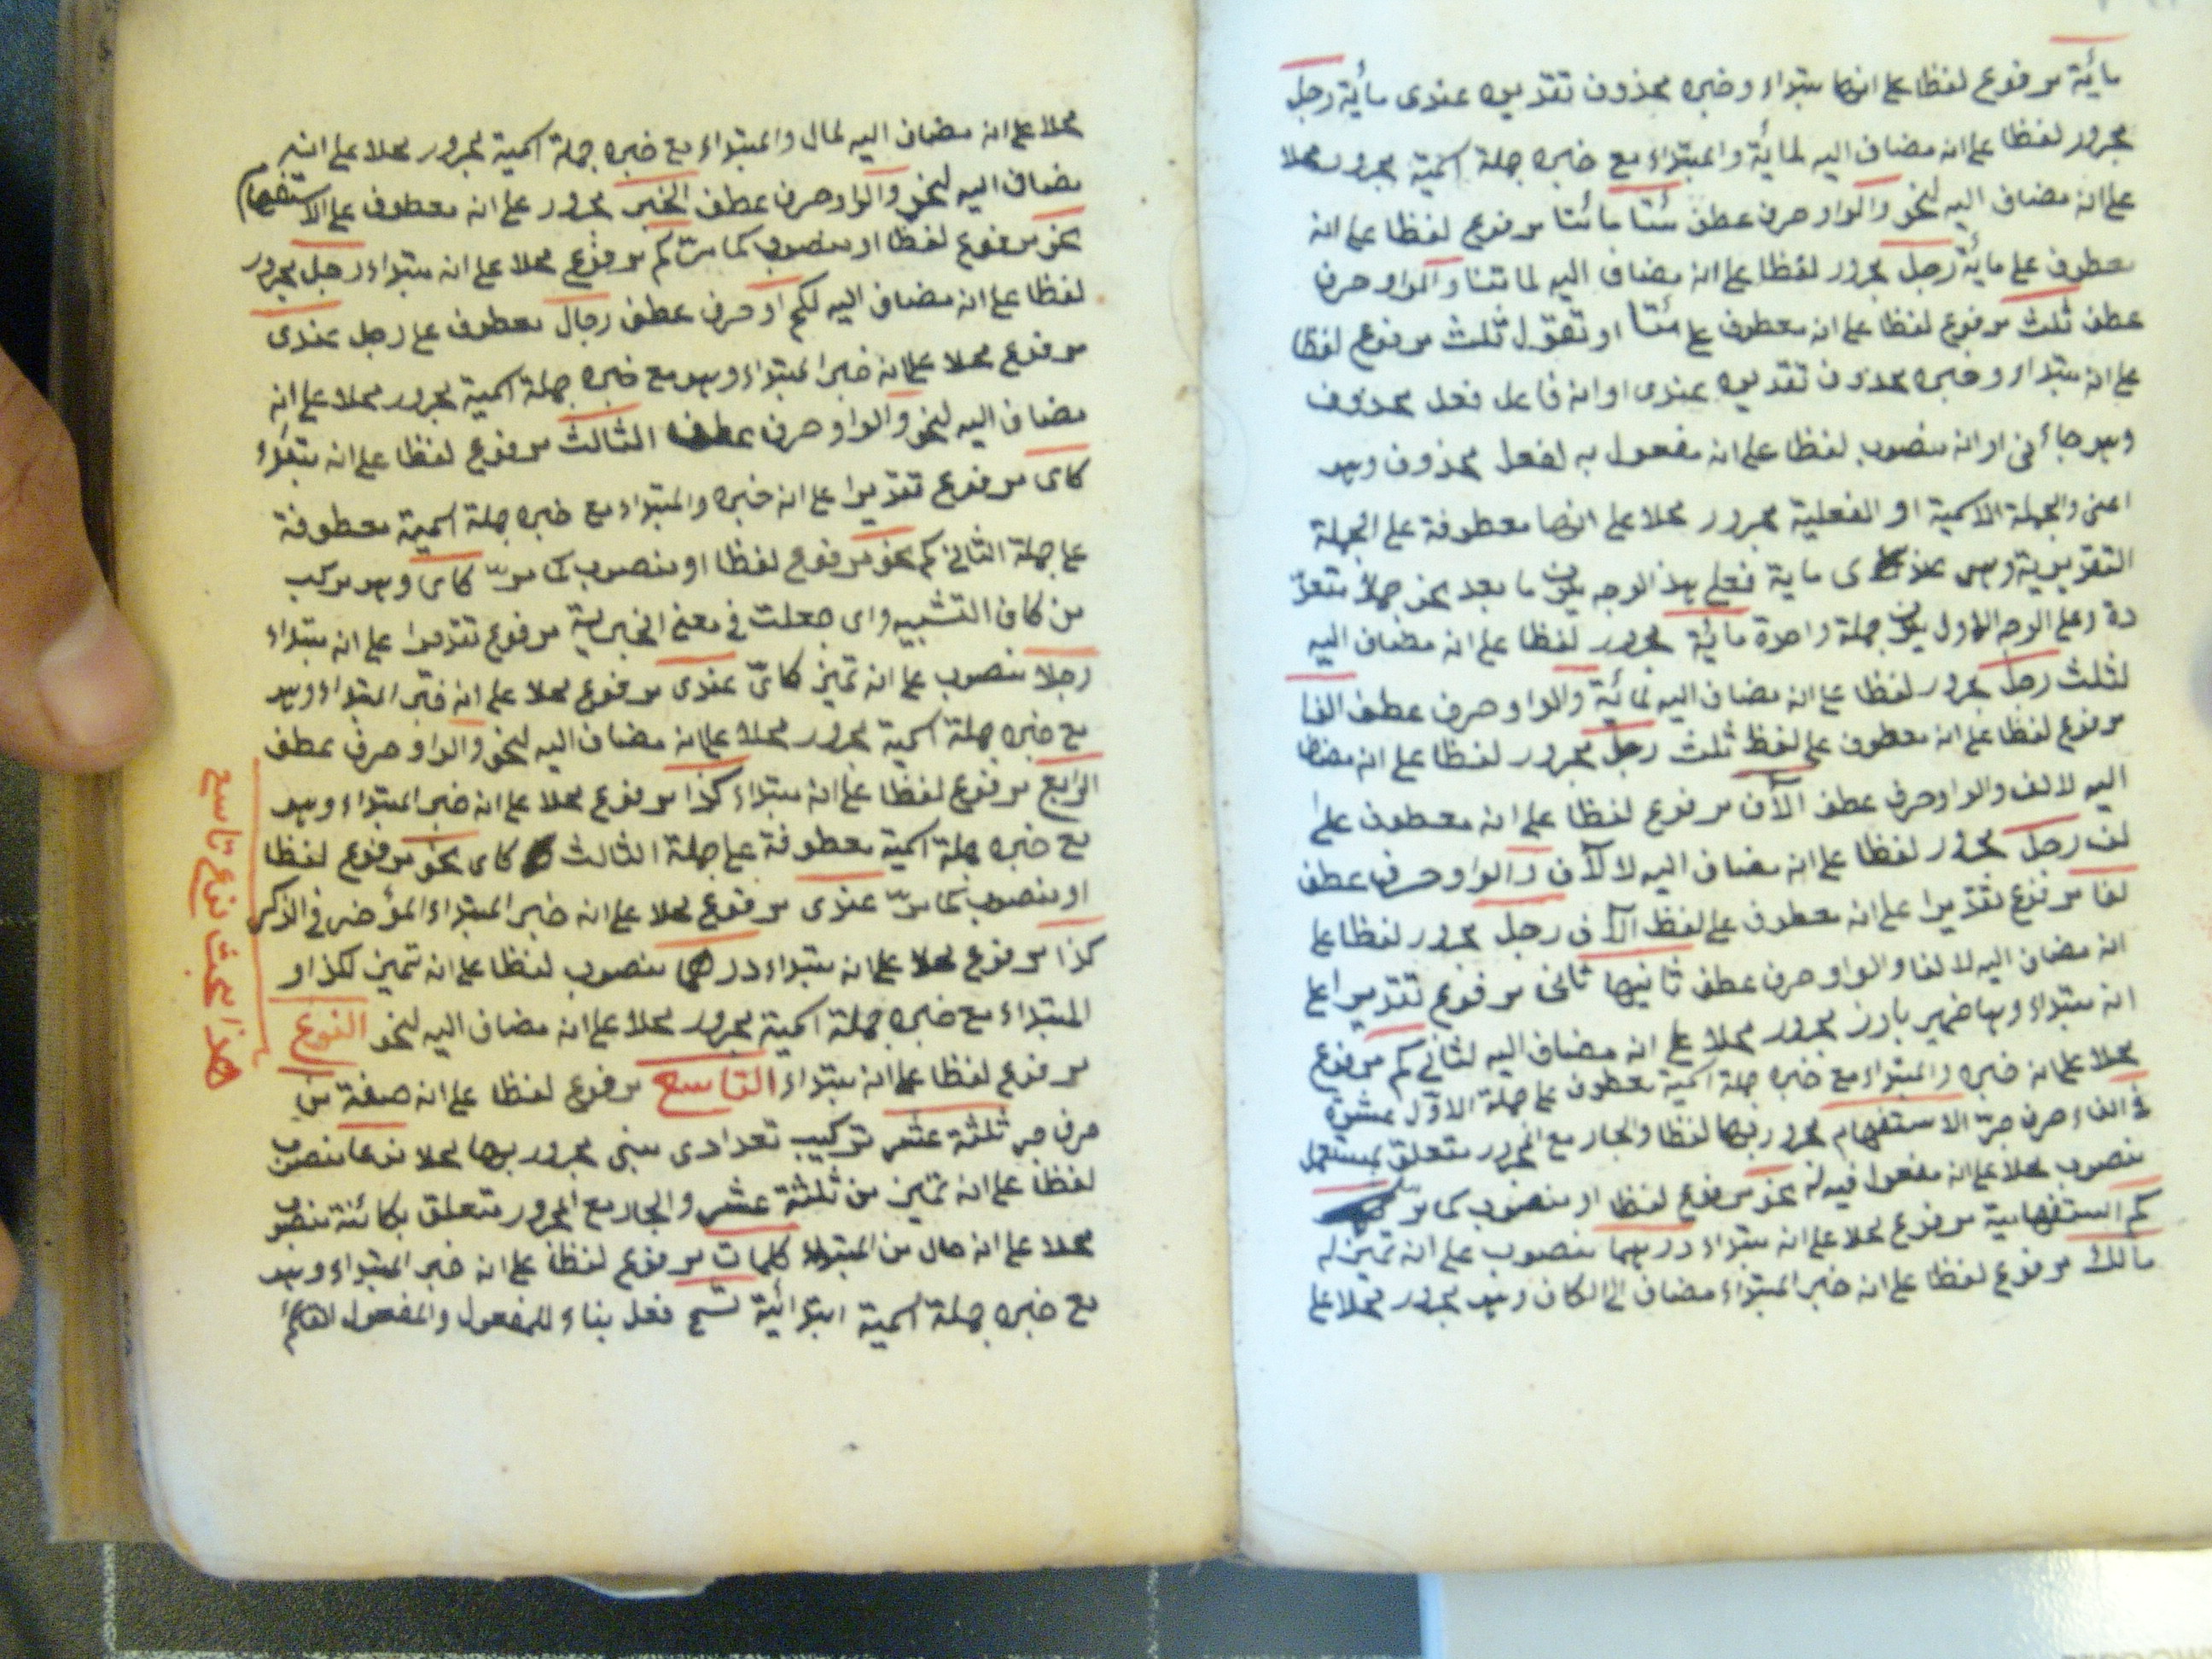 مائة مرفوع لفظا على انها مبتداء وخبره محذوف تقديره عندى مأية رجل
مجرور لفظا على انه مضاف اليه لمائة والمبتداء مع خبره جملة اسمية مجرور محلا
على انه مضاف اليه لنحو والواو حرف عطف مئتا مائتا مرفوع لفظا على انه
معطوف على مأية رجل مجرور لفظا على انه مضاف اليه لمائتا والواو حرف
عطف ثلث مرفوع لفظا على انه معطوف على مئتا او تقول ثلث مرفوع لفظا
على انه مبتداء وخبره محذوف تقديره عندى او انه فاعل فعل محذوف
وهو جائنى او انه منصوب لفظا على انه مفعول به لفعل محذوف وهو
اعنى والجملة الاسمية او الفعلية مجرور محلا على انها معطوفة على الجملة
التقديرية وهى عندى ماية فعلى هذا الوجه يكون ما بعد نحو جملا متعد
دة وعلى الوجه الاول يكون جملة واحدة مأية مجرور لفظا على انه مضاف اليه
لثلث رجل مجرور لفظا على انه مضاف اليه لمائة والواو حرف عطف الفا
مرفوع لفظا على انه معطوف على لفظ ثلث رجل مجرور لفظا على انه مضا
اليه لالف والواو حرف عطف الآف مرفوع لفظا على انه معطوف على
لف رجل مجرور لفظا على انه مضاف اليه لا لآف والواو حرف عطف
لفا مرفوع تقديرا على انه معطوف على لفظ الآف رجل مجرور لفظا على
انه مضاف اليه لا لفا والواو حرف عطف ثانيها ثانى مرفوع تقديرا على
انه مبتداء وها ضمير بارز مجرور محلا على انه مضاف اليه لثانى كم مرفوع
محلا على انه خبره والمبتداء مع خبره جملة اسمية معطوف على جملة الاول عشرة
فى الفاء حرف جر الاستفهام مجرور بها لفظا والجار مع المجرور متعلق بمستعمل
منصوب محلا على انه مفعول فيه له نحو مرفوع لفظا او منصوب كما مر
كم استفهامية مرفوع محلا على انه مبتداء درهما منصوب على انه تميز له
مالك مرفوع لفظا على انه خبر المبتداء مضاف الى الكاف وهو مجرور محلا على
محلا على انه مضاف اليه لمال والمبتداء مع خبره جملة اسمية مجرور محلا على انه
مضاف اليه لنحو والواو حرف عطف الخبر مجرور على انه معطوف على الاستفهام
نحو مرفوع لفظا او منصوب كما مر كم مرفوع محلا على انه مبتداء رجل مجرور
لفظا على انه مضاف اليه لكم او حرف عطف رجال معطوف على رجل عندى
مرفوع محلا على انه خبر المبتداء وهو مع خبره جملة اسمية مجرور محلا على انه
مضاف اليه لنحو والواو حرف عطف الثالث مرفوع لفظا على انه مبتداء
كاى مرفوع تقديرا على انه خبره والمبتداء مع خبره جملة اسمية معطوفة
على جملة الثانى كم نحو مرفوع لفظا او منصوب كما مر كاى وهو مركب
من كاف التشبيه واى جعلت فى معنى الخبرية مرفوع تقديرا على انه مبتداء
رجلا منصوب على انه تميز كاى عندى مرفوع محلا على انه خبر المبتداء وهو
مع خبره جملة اسمية مجرور محلا على انه مضاف اليه لنحو والواو حرف عطف
الرابع مرفوع لفظا على انه مبتداء كذا مرفوع محلا على انه خبر المبتداء وهو
مع خبره جملة اسمية معطوفة على جملة الثالث كاى نحو مرفوع لفظا
او منصوب كما مر عندى مرفوع محلا على انه خبر المبتداء المؤخر فى الذكر
كذا مرفوع محلا على انه مبتداء درهما منصوب لفظا على انه تميز لكذا و
المبتداء مع خبره جملة اسمية مجرور محلا على انه مضاف اليه لنحو النوع
مرفوع لفظا على انه مبتداء التاسع مرفوع لفظا على انه صفة من
حرف جر ثلثة عشر تركيب تعدادى مبنى مجرور بها محلا نوعا منصوب
لفظا على انه تميز من ثلثة عشر والجار مع المجرور متعلق بكائنة منصوب
محلا على انه حال من المبتداء كلمات مرفوع لفظا على انه خبر المبتداء وهو
مع خبره جملة اسمية ابتدائية تسمى فعل بناء للمفعول والمفعول القائم
هذا بحث نوع تاسع